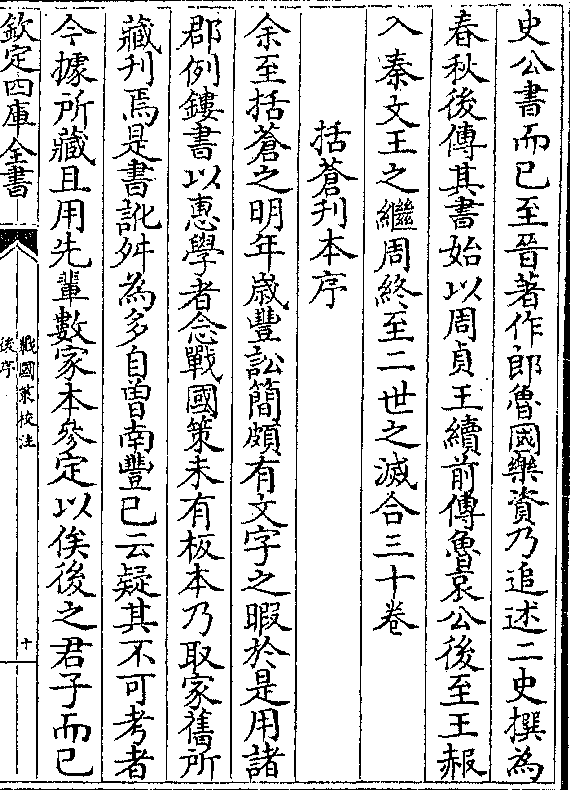 史公書而已至晉著作郎魯國樂資乃追述二史撰為
春秋後傳其書始以周貞王續前傳魯哀公後至王赧
入秦文王之繼周終至二世之滅合三十卷
括蒼刊本序
余至括蒼之明年歲豐訟簡頗有文字之暇於是用諸
郡例鏤書以惠學者念戰國策未有板本乃取家舊所
藏刊焉是書訛舛為多自曽南豐已云疑其不可考者
今據所藏且用先輩數家本參定以俟後之君子而已
欽定四庫全書
戰國策校注
後序
十